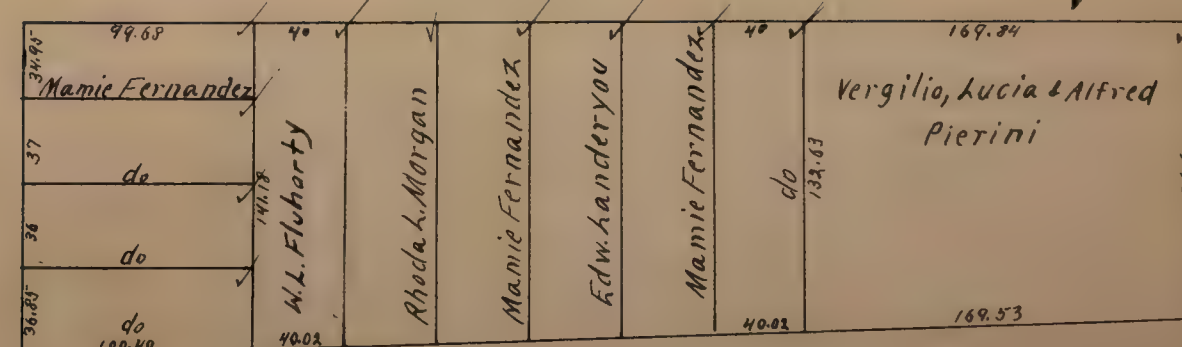 99.68
34.95
Mamie Fernandez
37
do
36
do
36.85
do
141.18
40
W.L. Fluharty
40.02
Rhoda L. Morgan
Mamie Fernandez
Edw. Landeryou
Mamie Fernandez
40
do
40.02
132.63
169.84
Vergilio, Lucia & Alfred
Pierini
169.53